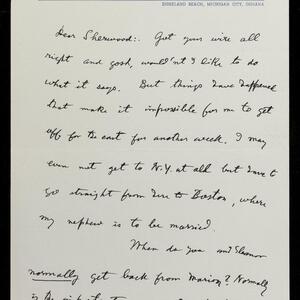 DUNELAND BEACH, MICHIGAN CITY, INDIANA
Dear Sherwood: Got your wire all
right and gosh, wouldn't I like to do
what it says. But things have happened
that make it impossible for me to get
off for the east for another week. I may
even not get to N.Y. at all but have to
go straight from here to Boston, where
my nephew is to be married.
When do you and Eleanor
normally get back from Marion? Normally
is the